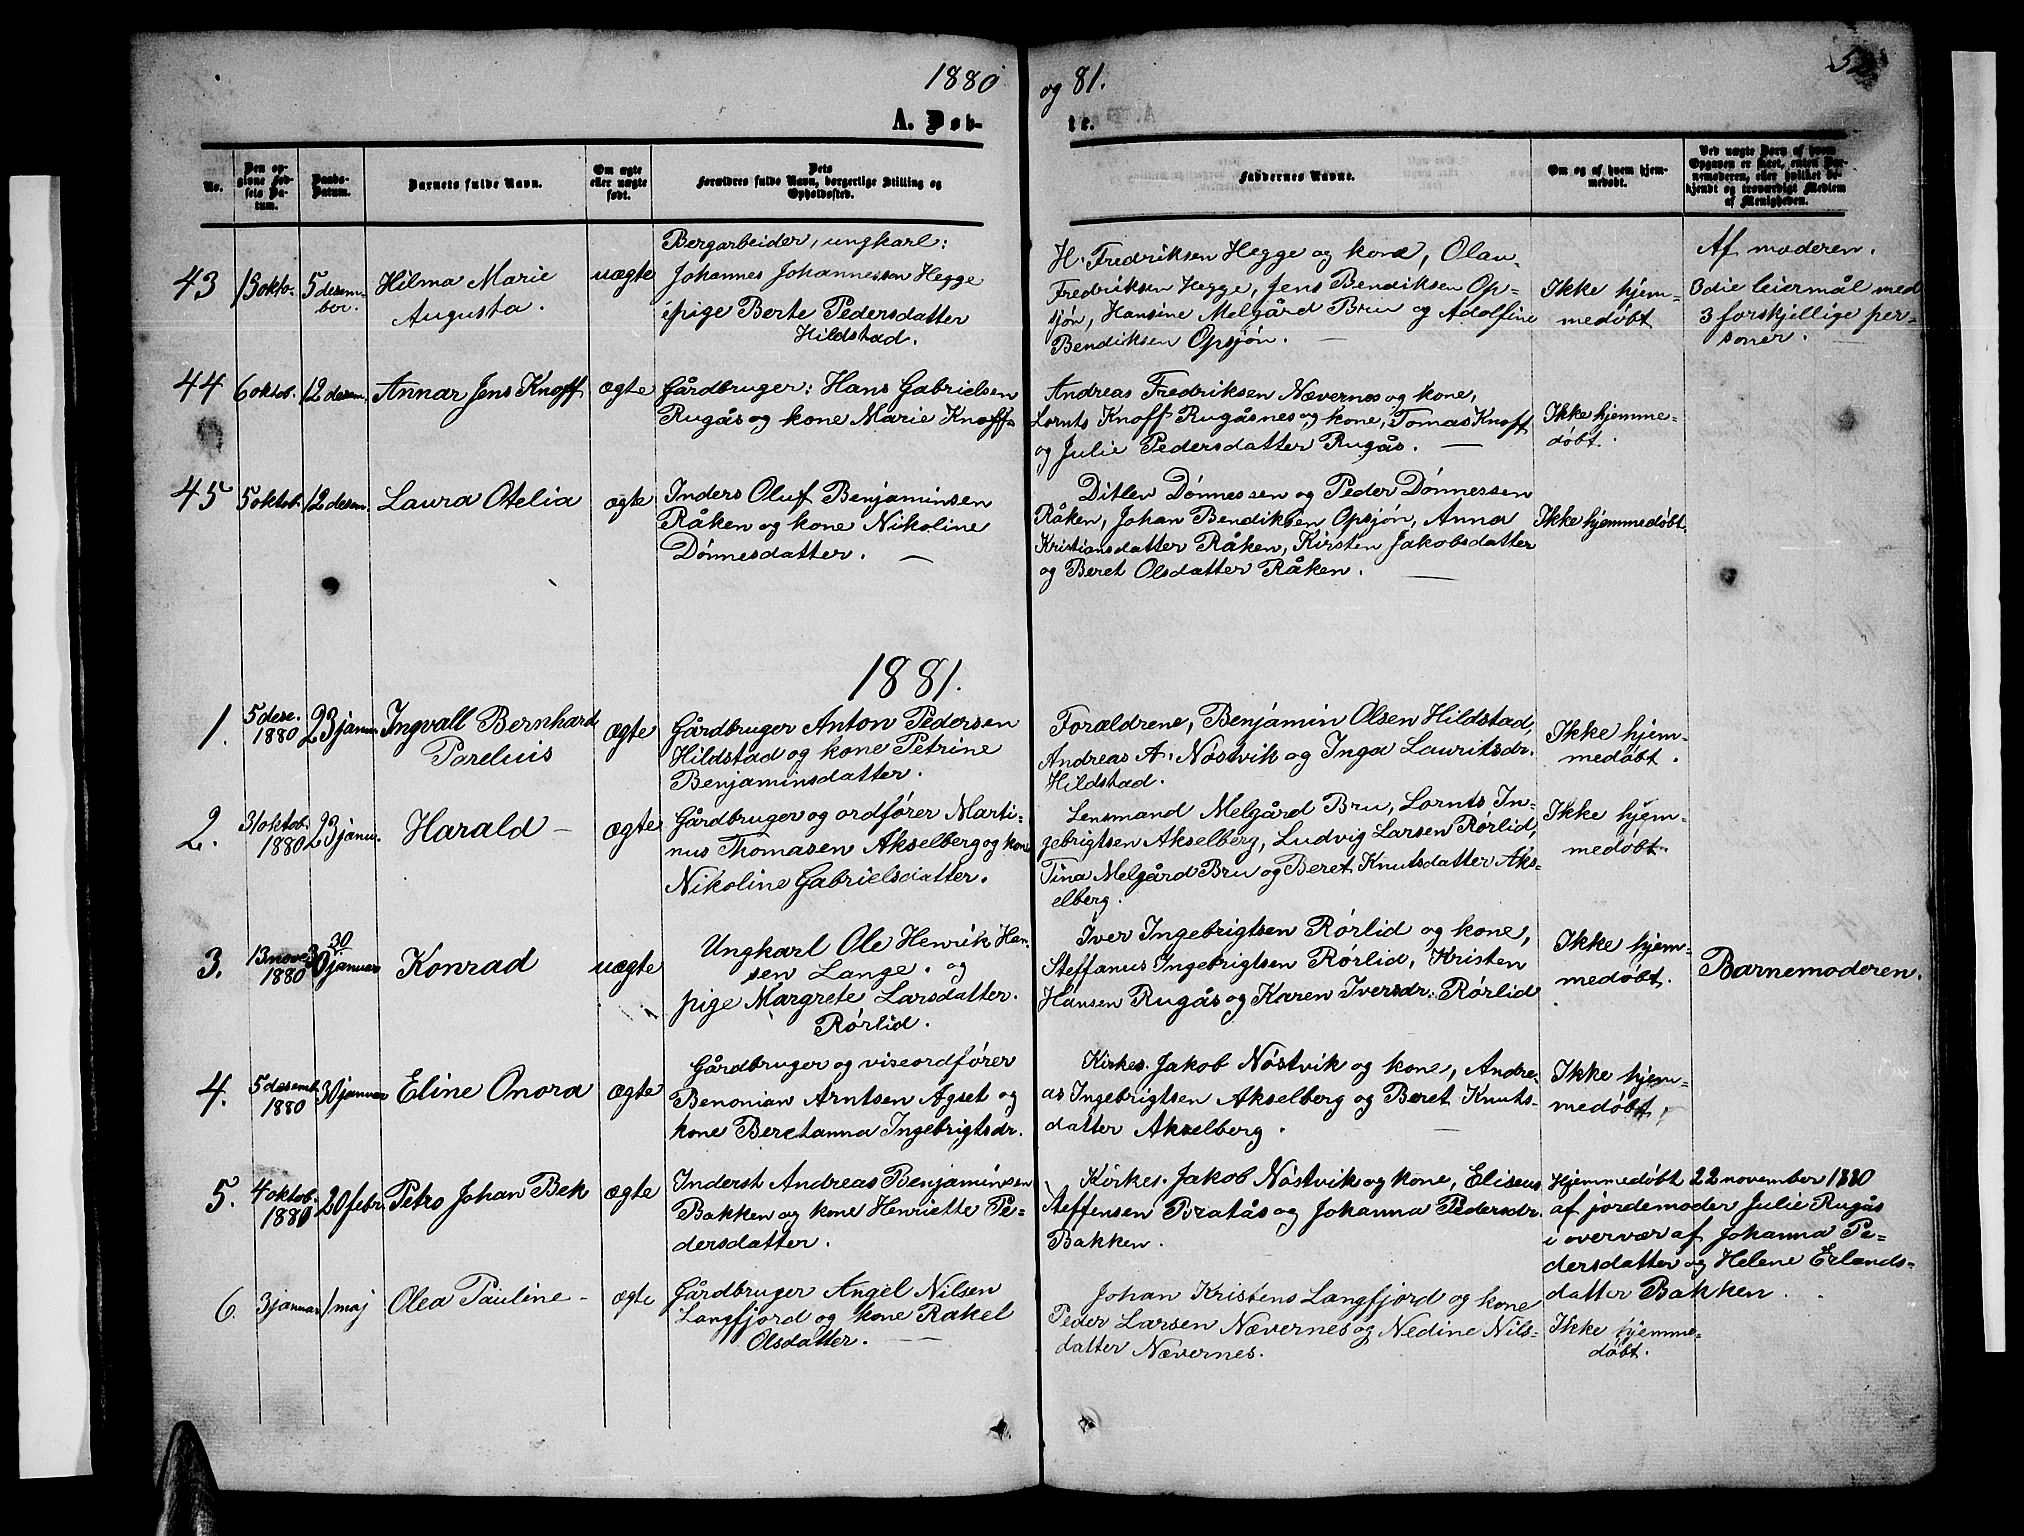 1880
og 81.
52
A. Døb-
te.
No.
Den op-
givne Fød-
sels Da-
tum.
Daabs-
Datum.
Barnets fulde Navn.
Om ægte
eller uægte
født.
Dets
Forældres fulde Navn, borgerlige Stilling og
Opholdssted.
Faddernes Navne.
Om og af hvem hjem-
medøbt.
Ved uægte Børn af hvem
Opgaven er skeet, enten Bar-
nemoderen, eller hvilket be-
kjendt og troværdigt Medlem
af Menigheden.
43
13 okto.
5 desem-
ber.
Hilma Marie
Augusta.
uægte
Bergarbeider, ungkarl:
Johannes Johannessen Hegge
& pige Berte Pedersdatter
Hildstad.
H. Fredriksen Hegge og kone, Olau-
Fredriksen Hegge, Jens Bendiksen Op-
sjøn, Hansine Melgård Bru og Adolfine
Bendiksen Opsjøn. —
Ikke hjem-
medøbt
Af moderen.
3die leiermål med
3 forskjellige per-
soner.
44
6 oktob.
12 desem.
Annar Jens Knoff
ægte
Gårdbruger: Hans Gabrielsen
Rugås og kone Marie Knoff.
Andreas Fredriksen Nævernes og kone,
Lornts Knoff Rugåsnes og kone, Tomas Knoff
og Julie Pedersdatter Rugås. —
Ikke hjemme-
døbt.
45
5 oktob.
12 desem.
Laura Otelia
ægte
Inders Oluf Benjaminsen
Råken og kone Nikoline
Dønnesdatter. —
Ditlev Dønnessen og Peder Dønnessen
Råken, Johan Bendiksen Opsjøn, Anna
Kristiansdatter Råken, Kirsten Jakobsdatter
og Beret Olsdatter Råken. —
Ikke hjemmedøbt.
1881.
1.
5 dese.
1880
23 janua
Ingvall Bernhard
Parelius
ægte
Gårdbruger Anton Pedersen
Hildstad og kone Petrine
Benjaminsdatter.
Forældrene, Benjamin Olsen Hildstad,
Andreas A. Nøstvik og Inga Lauritsdr.
Hildstad.
Ikke hjem-
medøbt.
2.
31 oktob.
1880
23 janu.
Harald —
ægte
Gårdbruger og ordfører Marti-
nus Thomasen Akselberg og kone
Nikoline Gabrielsdatter.
Lensmand Melgård Bru, Lornts In-
gebrigtsen Akselberg, Ludvig Larsen Rørlid,
Tina Melgård Bru og Beret Knutsdatter Aks-
elberg.
Ikke hjem-
medøbt.
3.
13 nove.
1880
30
30 januar
Konrad
uægte
Ungkarl Ole Henrik Han-
sen Lange. og
pige Margrete Larsdatter.
Rørlid.
Iver Ingebrigtsen Rørlid og kone,
Steffanus Ingebrigtsen Rørlid, Kristen
Hansen Rugås og Karen Iversdr. Rørlid
Ikke hjem-
medøbt.
Barnemoderen.
4.
5 desemb.
1880
30 januar
Eline Onora
ægte
Gårdbruger og viseordfører
Benonian Arntsen Agset og
kone Beretanna Ingebrigtsdr.
Kirkes. Jakob Nøstvik og kone, Andre-
as Ingebrigtsen Akselberg og Beret Knuts-
datter Akselberg. —
Ikke hjem-
medøbt.
5.
4 oktob.
1880
20 febr.
Petro Johan Bek
ægte
Inderst Andreas Benjaminsen
Bakken og kone Henriette Pe-
dersdatter.
Kirkes. Jakob Nøstvik og kone, Eliseus
Steffensen Bratås og Johanna Pedersdr.
Bakken.
Hjemmedøbt 22 november 1880
af jordemoder Julie Rugås
i overvær af Johanna Pe-
dersdatter og Helene Erlends-
datter Bakken.
6.
3 januar
1 maj
Olea Pauline —
ægte
Gårdbruger Angel Nilsen
Langfjord og kone Rakel
Olsdatter. —
Johan Kristens Langfjord og kone
Peder Larsen Nævernes og Nedine Nils-
datter Nævernes.
Ikke hjemme-
døbt.